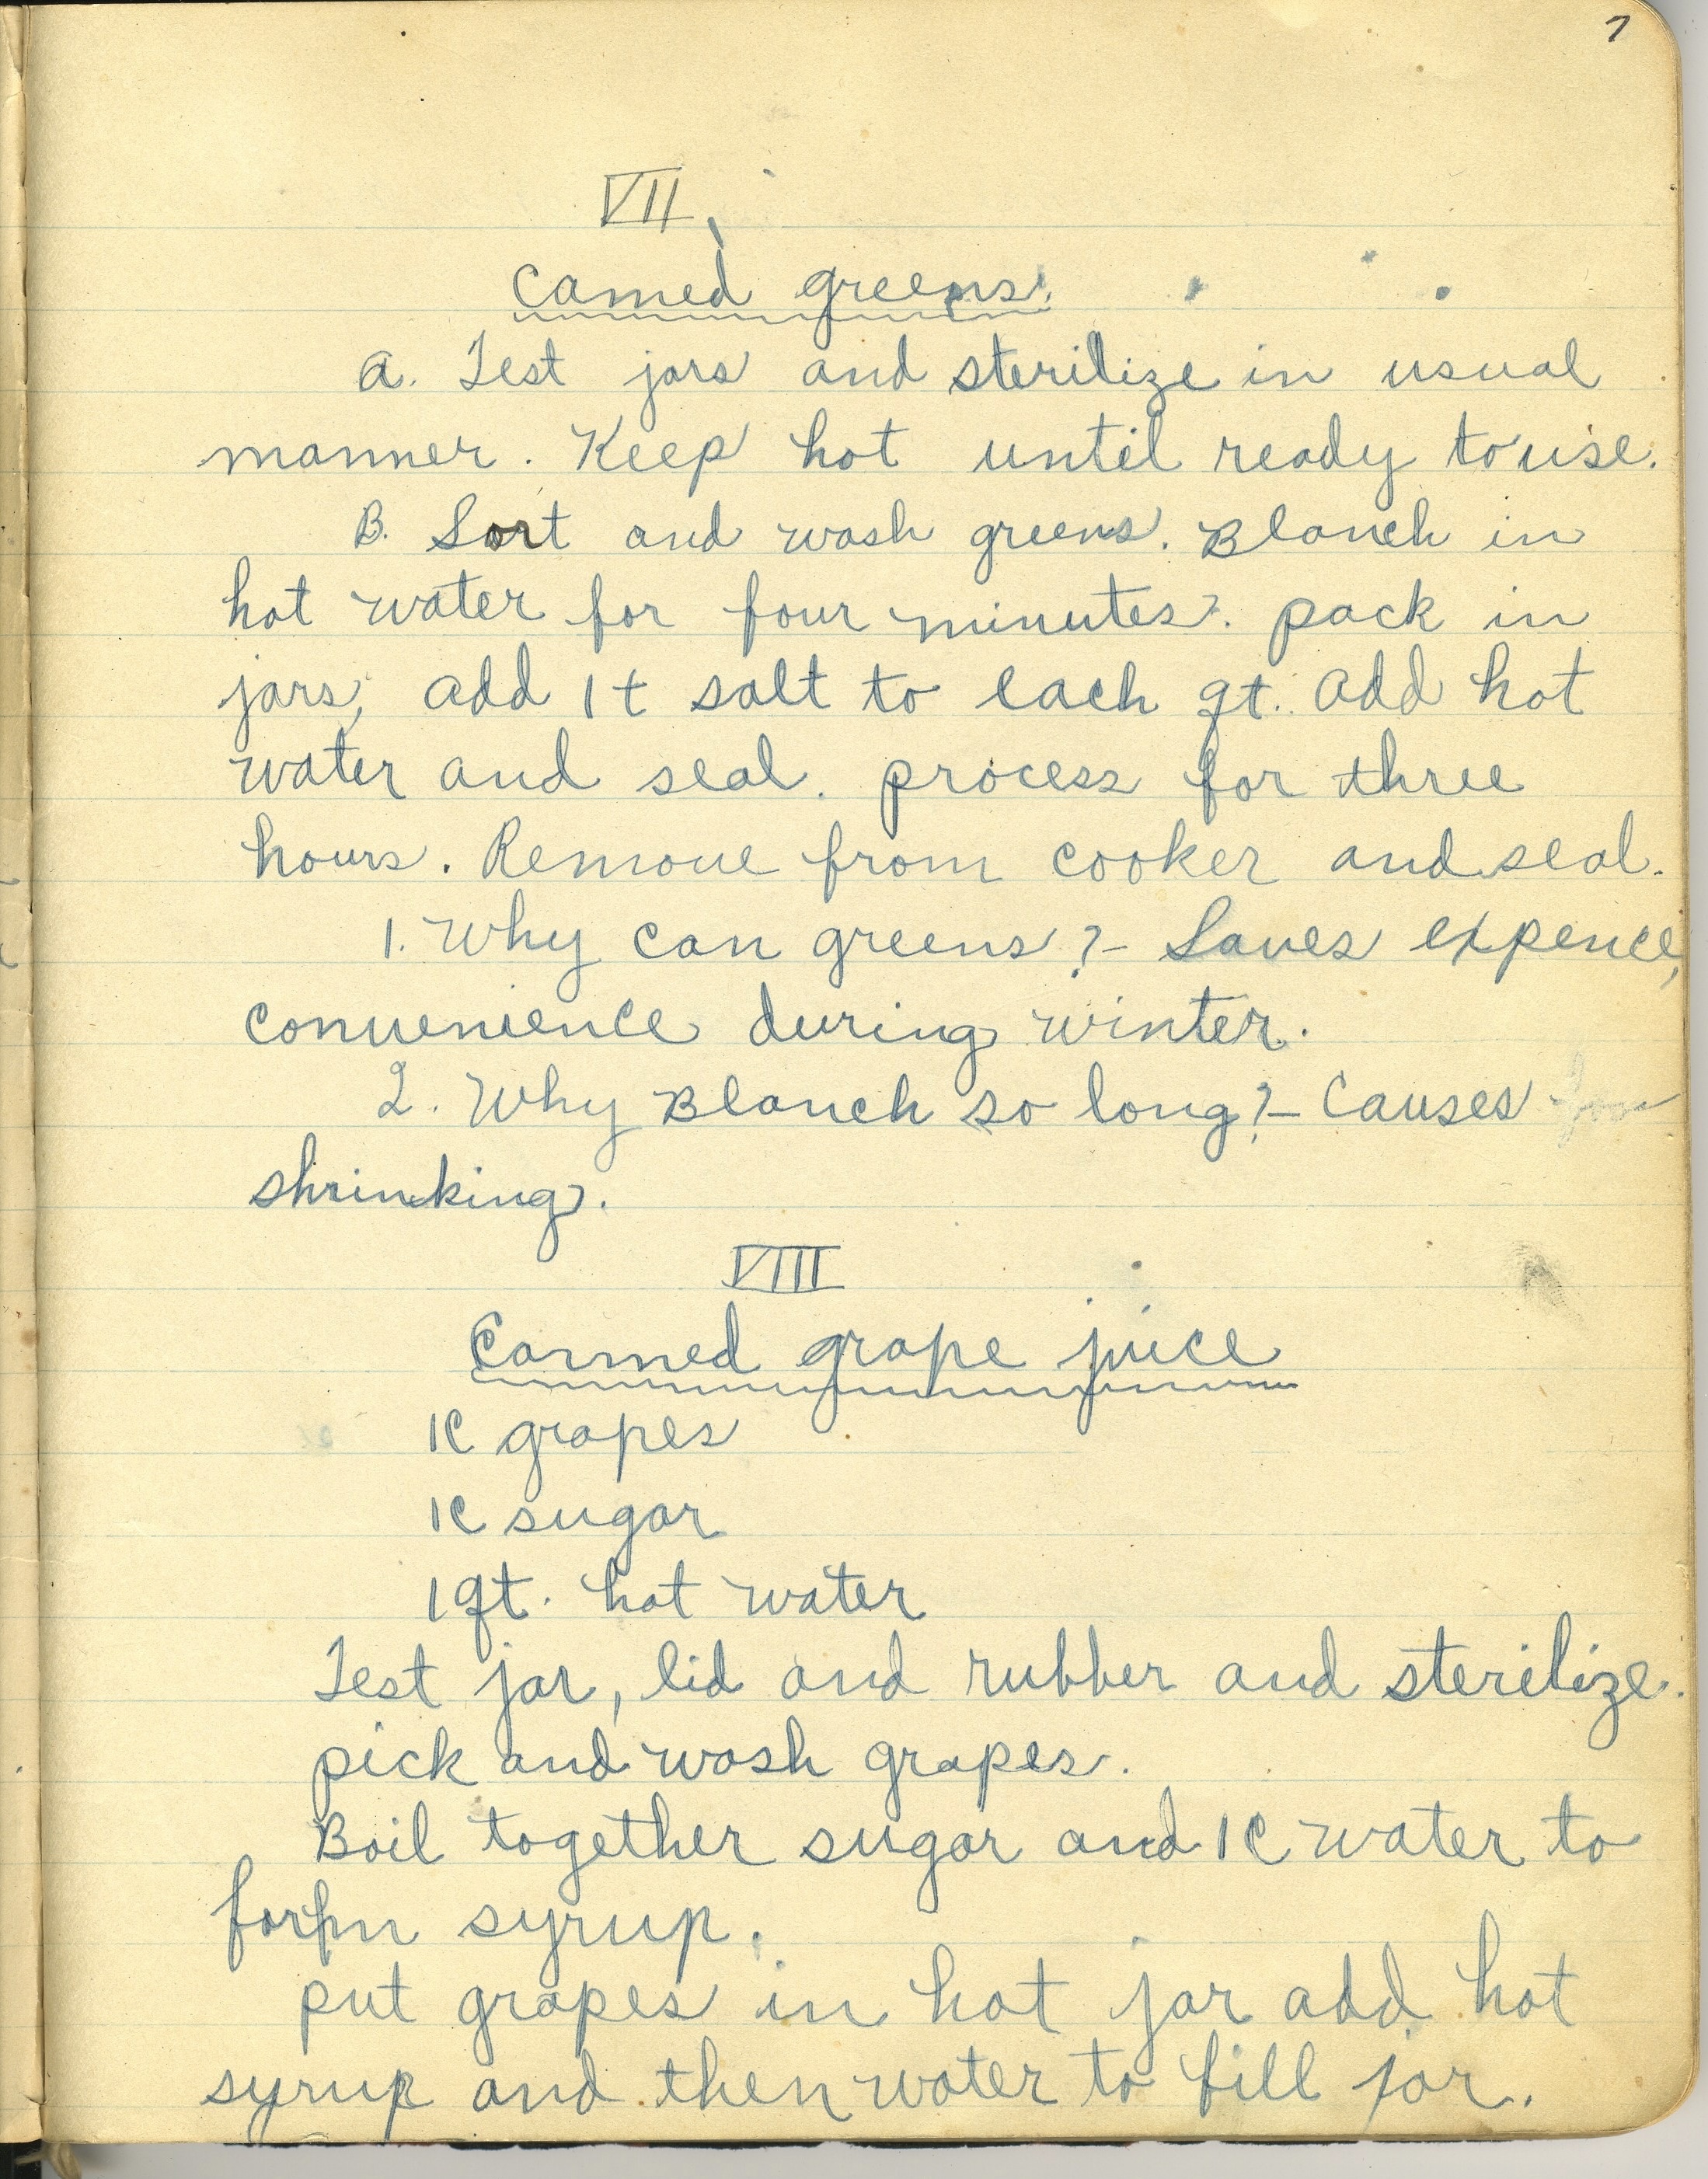 7
VII
Canned greens.
a. Test jars and sterilize in usual
manner. Keep hot until ready to use.
B. Sort and wash greens. Blanch in
hot water for four minutes. pack in
jars, add 1 t salt to each qt. add hot
water and seal. process for three
hours. Remove from cooker and seal.
1. Why can greens?- Saves expence,
convenience during winter.
2. Why Blanch so long?- Causes
shrinking.
VIII
Canned grape juice
1c grapes
1c sugar
1 qt. hot water
Test jar, lid and rubber and sterilize.
pick and wash grapes.
Boil together sugar and 1c water to
form syrup.
put grapes in hot jar add hot
syrup and then water to fill jar.